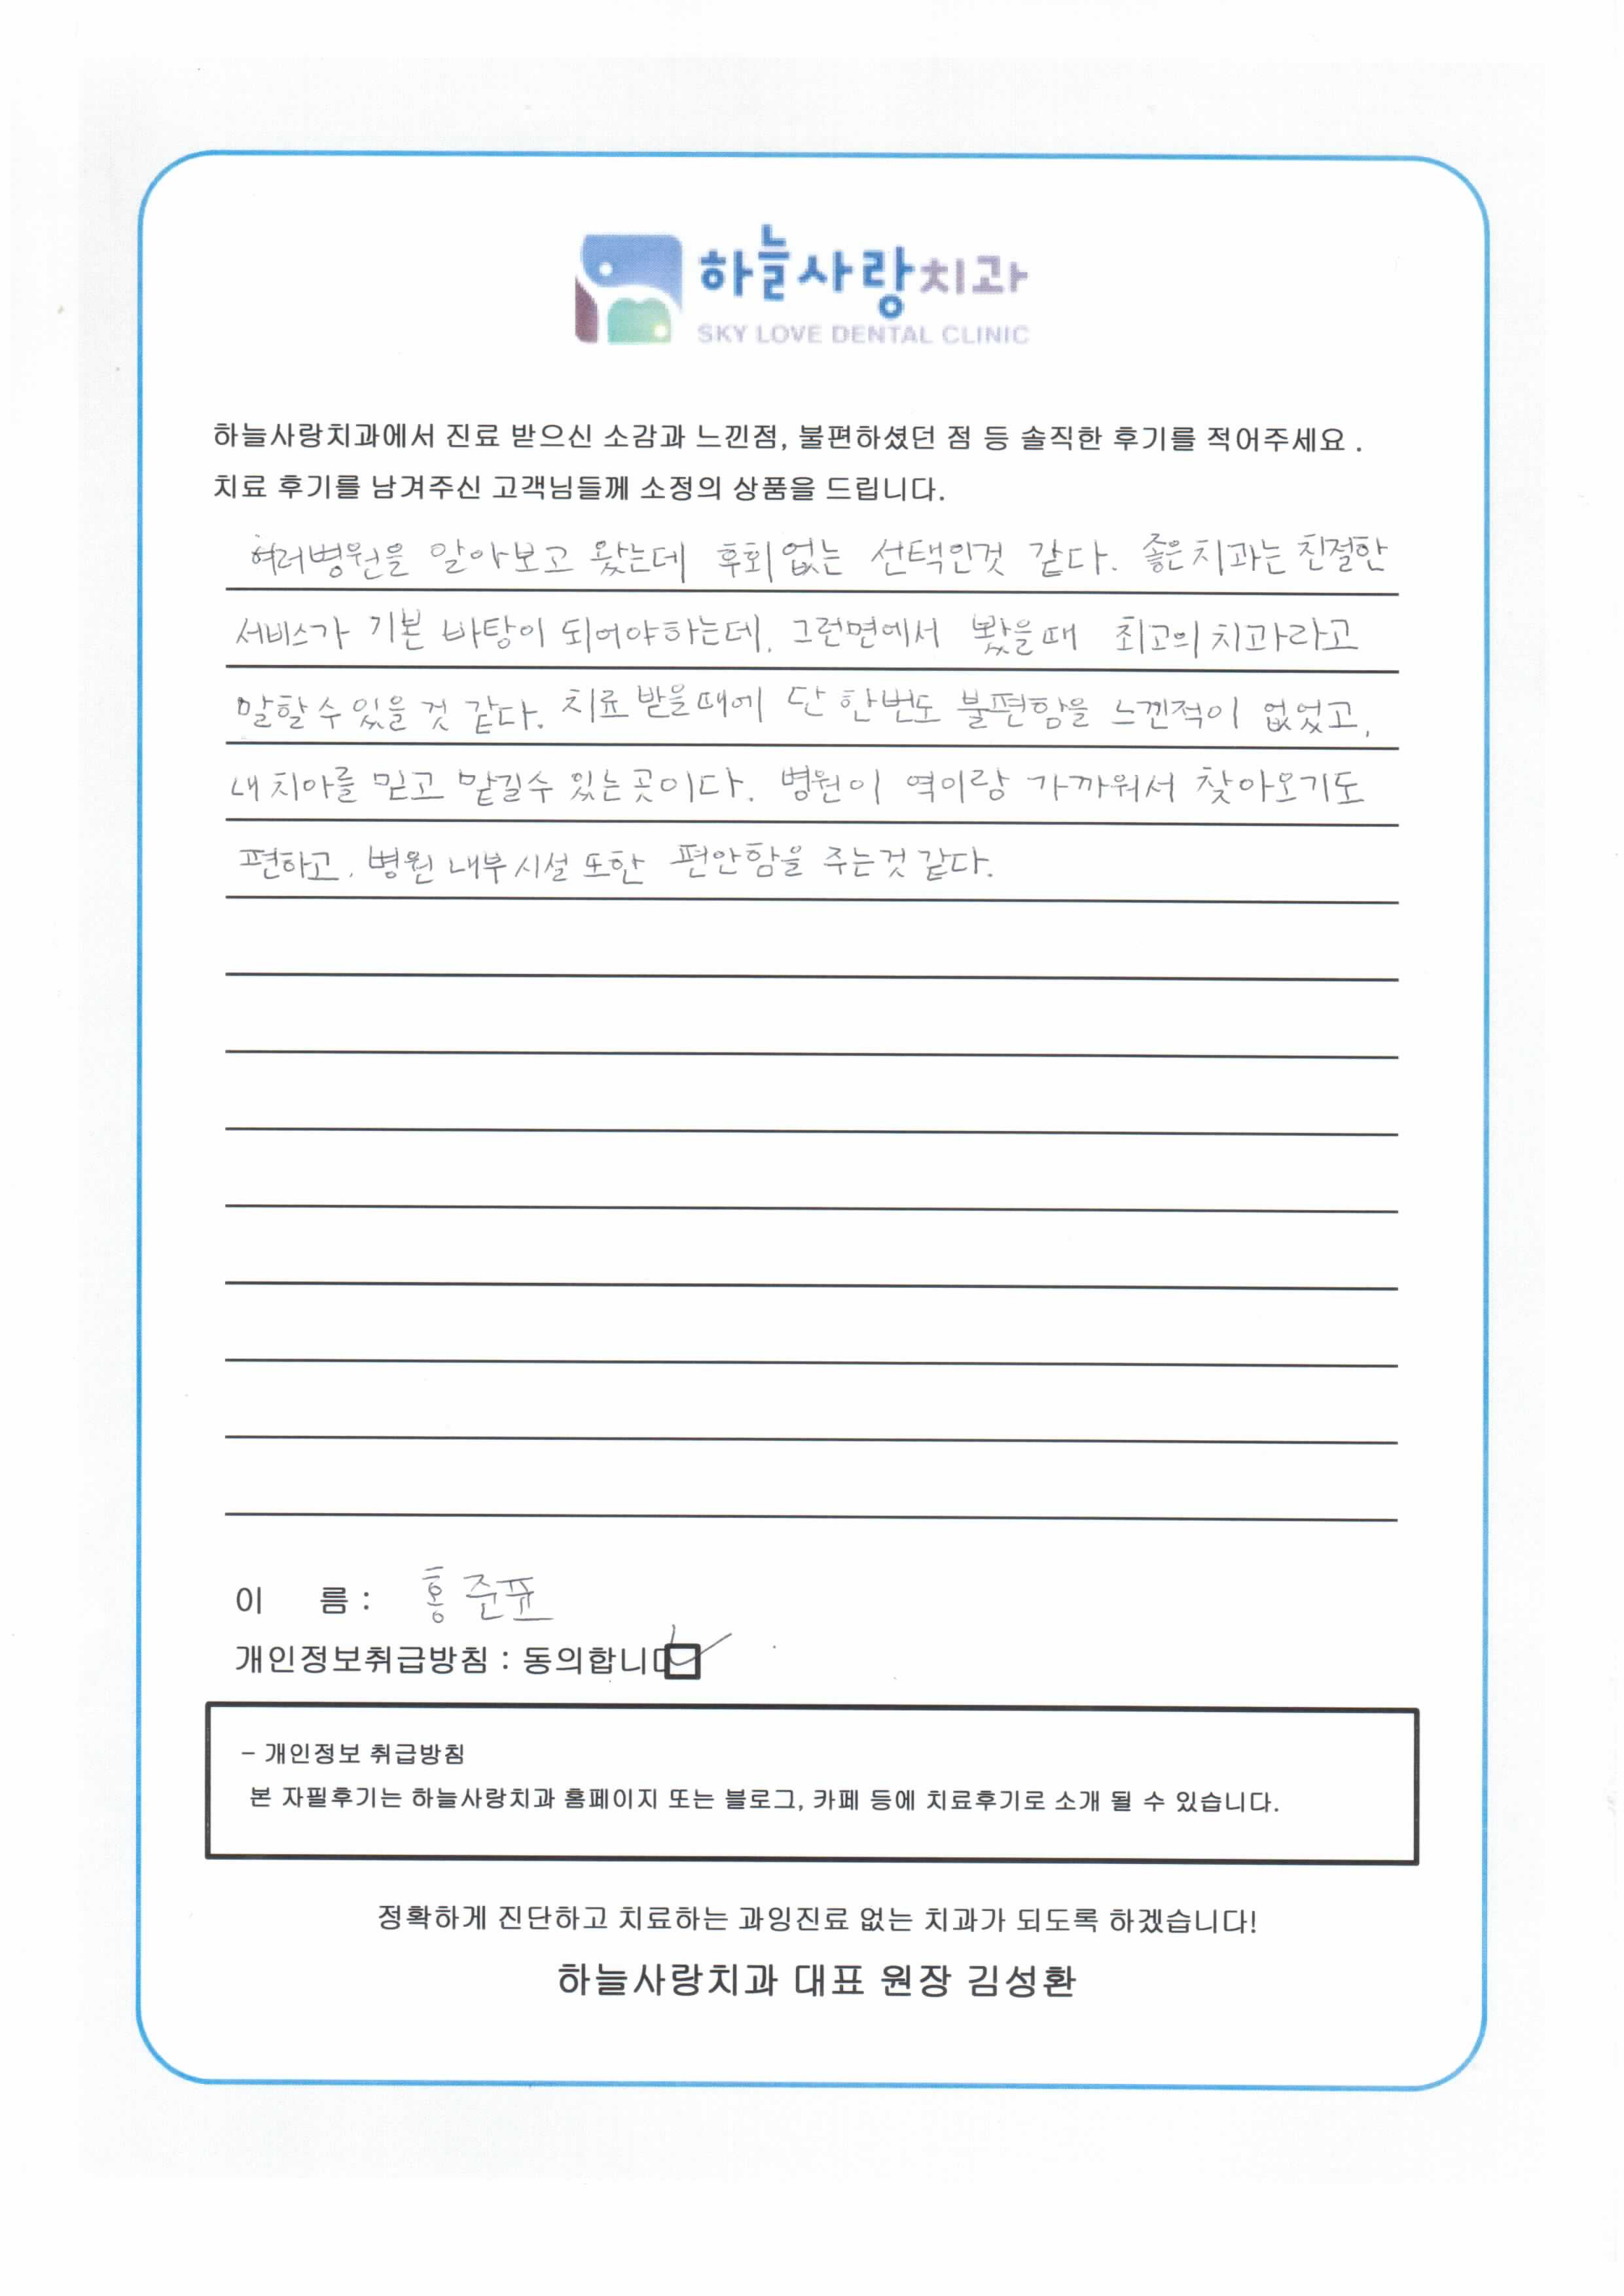 하늘사랑치과
SKY LOVE DENTAL CLINIC
하늘사랑치과에서 진료 받으신 소감과 느낀점, 불편하셨던 점 등 솔직한 후기를 적어주세요 .
치료 후기를 남겨주신 고객님들께 소정의 상품을 드립니다.
여러병원을 알아보고 왔는데 후회없는 선택인것 같다. 좋은치과는 친절한
서비스가 기본 바탕이 되어야하는데, 그런면에서 봤을때 최고의 치과라고
말할수있을 것 같다. 치료 받을때에 단 한번도 불편함을 느낀적이 없었고,
내 치아를 믿고 맡길수 있는곳이다. 병원이 역이랑 가까워서 찾아오기도
편하고, 병원 내부시설 또한 편안함을 주는것 같다.
이 름 : 홍준표
개인정보취급방침 : 동의합니다
- 개인정보 취급방침
본 자필후기는 하늘사랑치과 홈페이지 또는 블로그, 카페 등에 치료후기로 소개 될 수 있습니다.
정확하게 진단하고 치료하는 과잉진료 없는 치과가 되도록 하겠습니다!
하늘사랑치과 대표 원장 김성환